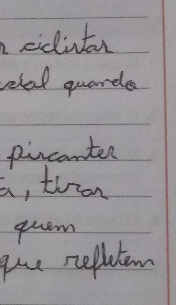 ciclistas
quando
piscantes
, tiras
quem
que refletem